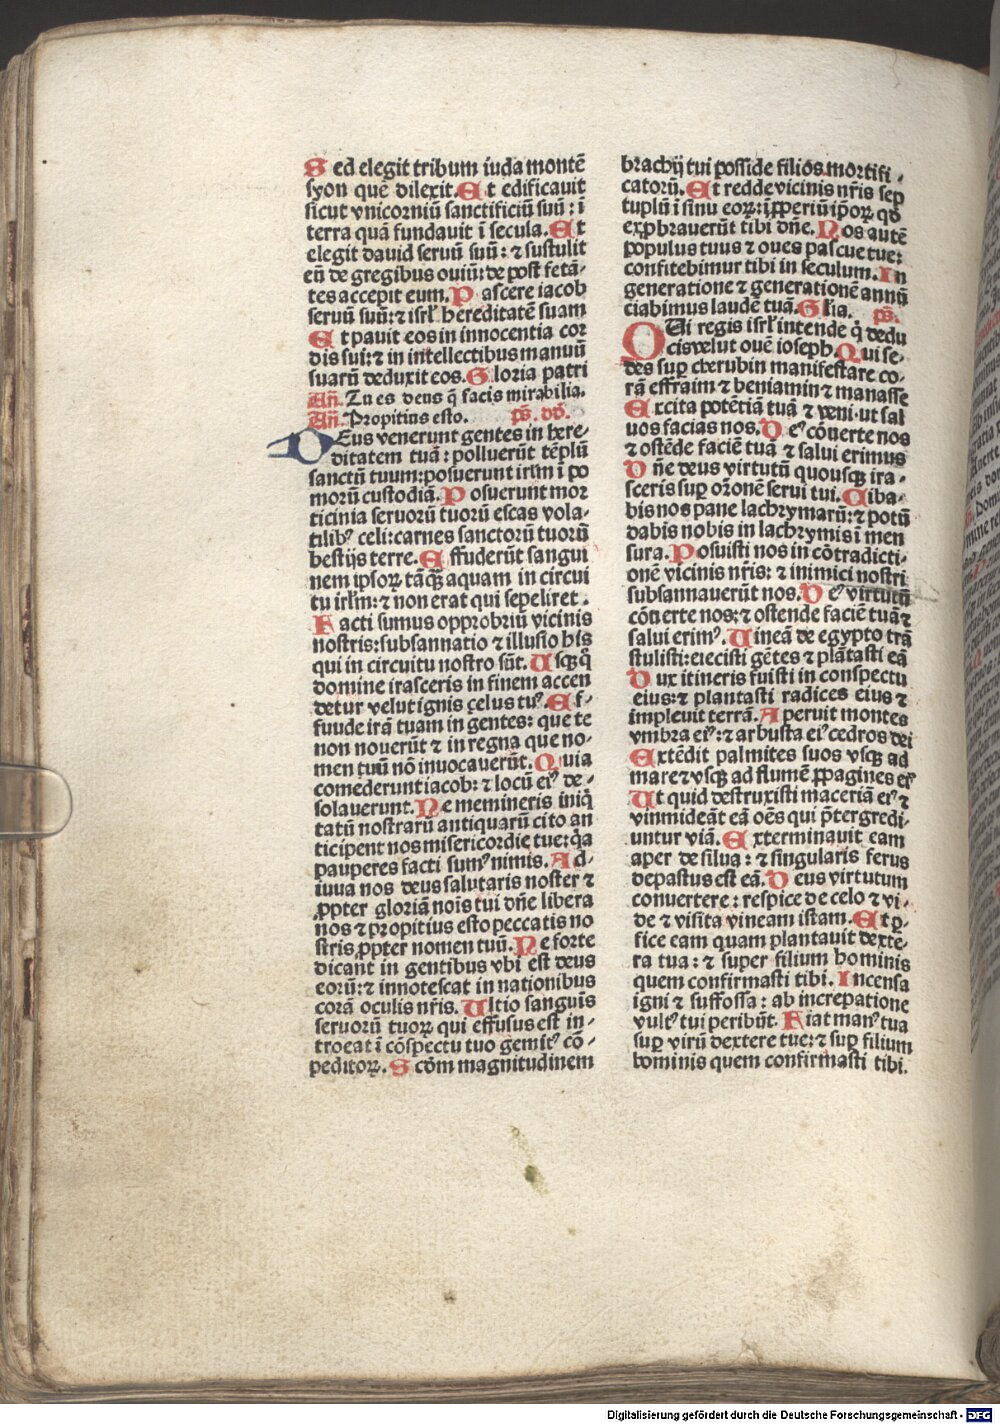 Sed elegit tribum iuda montē
syon quē dilexit. Et edificauit
sicut vnicorniū sanctificiū suū: ī
terra quā fundauit ī secula. Et
elegit dauid seruū suū: ⁊ sustulit
eū de gregibus ouiū: de post fetā-
tes accepit eum. Pascere iacob
seruū suū: ⁊ isrl' hereditatē suam
Et pauit eos in innocentia cor
dis sui: ⁊ in intellectibus manuū
suarū deduxit eos. Gloria patri
Añ. Tu es deus q̄ facis mirabilia.
Añ. Propitius esto. ps. dd.
DEus venerunt gentes in here-
ditatem tuā: polluerūt tēplū
sanctū tuum: posuerunt irlm ī po
morū custodiā. Posuerunt mor
ticinia seruorū tuorū escas vola-
tilibꝰ celi: carnes sanctorū tuorū
bestijs terre. Effuderūt sangui
nem ipsoꝝ tāq̄ꝫ aquam in circui
tu irlm: ⁊ non erat qui sepeliret.
Facti sumus opprobriū vicinis
nostris: subsannatio ⁊ illusio his
qui in circuitu nostro sūt. Usqꝫq̊
domine irasceris in finem accen
detur velut ignis çelus tuꝰ. Ef-
funde irā tuam in gentes: que te
non nouerūt ⁊ in regna que no-
men tuū nō inuocauerūt. Quia
comederunt iacob: ⁊ locū eiꝰ de-
solauerunt. Ne memineris iniq̊
tatū nostrarū antiquarū cito an
ticipent nos misericordie tue: q̄a
pauperes facti sumꝰ nimis. Ad-
iuua nos deus salutaris noster ⁊
ꝓpter gloriā nois tui dn̄e libera
nos ⁊ propitius esto peccatis no
stris ꝓpter nomen tuū. Ne forte
dicant in gentibus vbi est deus
eorū: ⁊ innotescat in nationibus
corā oculis nr̄is. Ultio sanguīs
seruorū tuoꝝ qui effusus est in-
troeat ī cōspectu tuo gemitꝰ cō-
peditoꝝ. Scd̄m magnitudinem
brachij tui posside filios mortifi-
catorū. Et redde vicinis nr̄is sep
tuplū ī sinu eoꝝ: īꝓperiū ip̄oꝝ qd̄
exꝓbrauerūt tibi dn̄e. Nos autē
populus tuus ⁊ oues pascue tue:
confitebimur tibi in seculum. In
generatione ⁊ generationē annū
ciabimus laudē tuā. Glia. ps.
QUi regis isrl' intende q̇ dedu
cis velut ouē ioseph. Qui se-
des sup̄ cherubin manifestare co-
rā effraim ⁊ beniamin ⁊ manasse
Excita potētiā tuā ⁊ veni: vt sal
uos facias nos. Deꝰ cōuerte nos
⁊ ostēde faciē tuā ⁊ salui erimus
Dn̄e deus virtutū quousqꝫ ira-
sceris sup̄ or̄onē serui tui. Ciba-
bis nos pane lachrymarū: ⁊ potū
dabis nobis in lachrymis ī men
sura. Posuisti nos in cōtradicti-
onē vicinis nr̄is: ⁊ inimici nostri
subsannauerūt nos. Deꝰ virtutū
cōuerte nos: ⁊ ostende faciē tuā ⁊
salui erimꝰ. Uineā de egypto trā
stulisti: eiecisti gētes ⁊ plātasti eā
Dux itineris fuisti in conspectu
eius: ⁊ plantasti radices eius ⁊
impleuit terrā. Aperuit montes
vmbra eiꝰ: ⁊ arbusta eiꝰ cedros dei
Extēdit palmites suos vsqꝫ ad
mare ⁊ vsqꝫ ad flumē ꝓpagines eiꝰ
Ut quid destruxisti maceriā eiꝰ ⁊
vinmideāt eā oēs qui p̄tergredi-
untur viā. Exterminauit eam
aper de silua: ⁊ singularis ferus
depastus est eā. Deus virtutum
conuertere: respice de celo ⁊ vi-
de ⁊ visita vineam istam. Et ꝑ-
fice eam quam plantauit dexte-
ra tua: ⁊ super filium hominis
quem confirmasti tibi. Incensa
igni ⁊ suffossa: ab increpatione
vultꝰ tui peribūt. Fiat manꝰ tua
sup̄ virū dextere tue: ⁊ sup̄ filium
hominis quem confirmasti tibi.
Digitalisierung gefördert durch die Deutsche Forschungsgemeinschaft - DFG